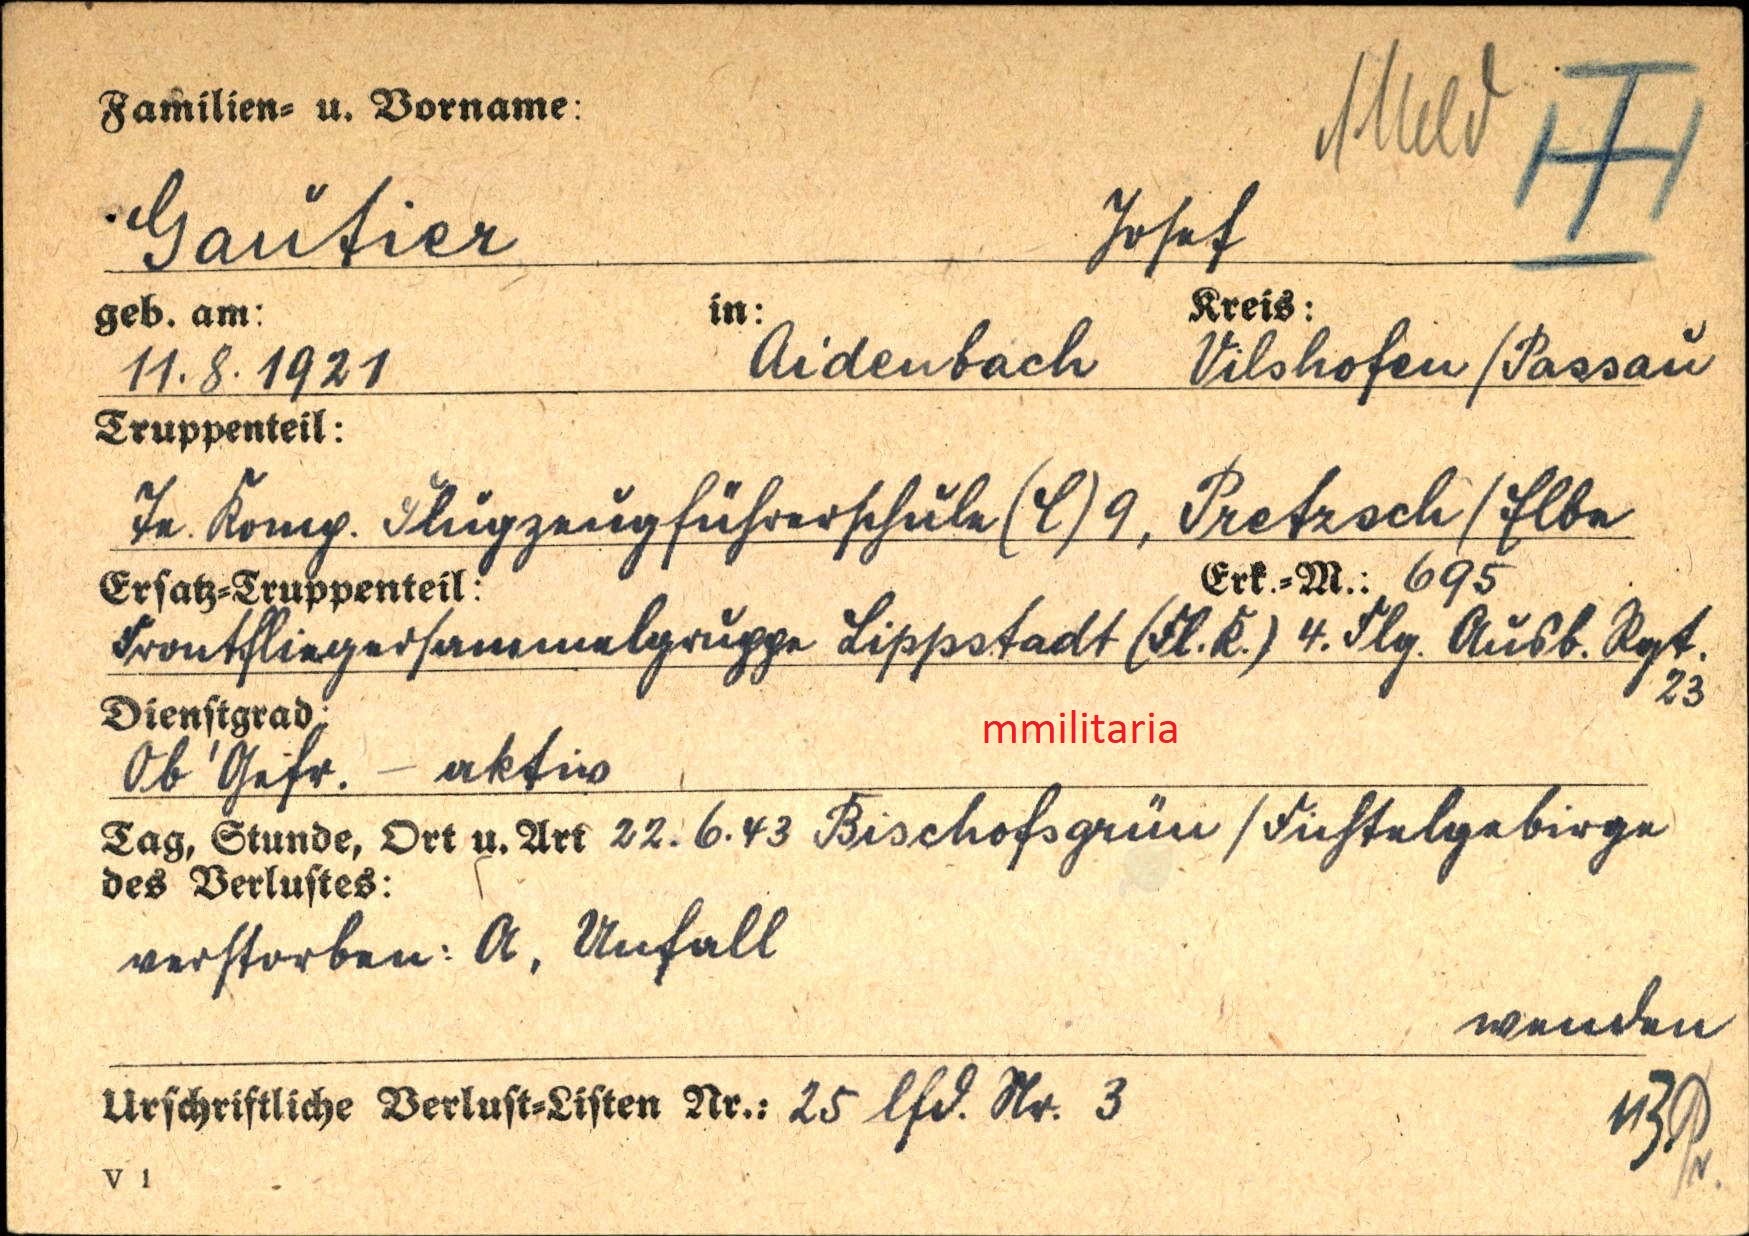 Meld
Familien- u. Vorname:
Gautier Josef
geb. am: in: Kreis:
11.8.1921 Aidenbach Vilshofen / Passau
Truppenteil:
Komp. Flugzeugführerschule (C) 9, Pretzsch / Elbe
Ersatz-Truppenteil: Erk.-M.: 695
Frontfliegersammelgruppe Lippstadt (Fl. K.) 4. Flg. Ausb. Rgt.
23
Dienstgrad:
mmilitaria
Ob'Gefr. – aktiv
Tag, Stunde, Ort u. Art 22.6.43 Bischofsgrün / Fichtelgebirge
des Verlustes:
verstorben: A, Unfall
wenden
Urschriftliche Verlust-Listen Nr.: 25 lfd. Nr. 3
V 1